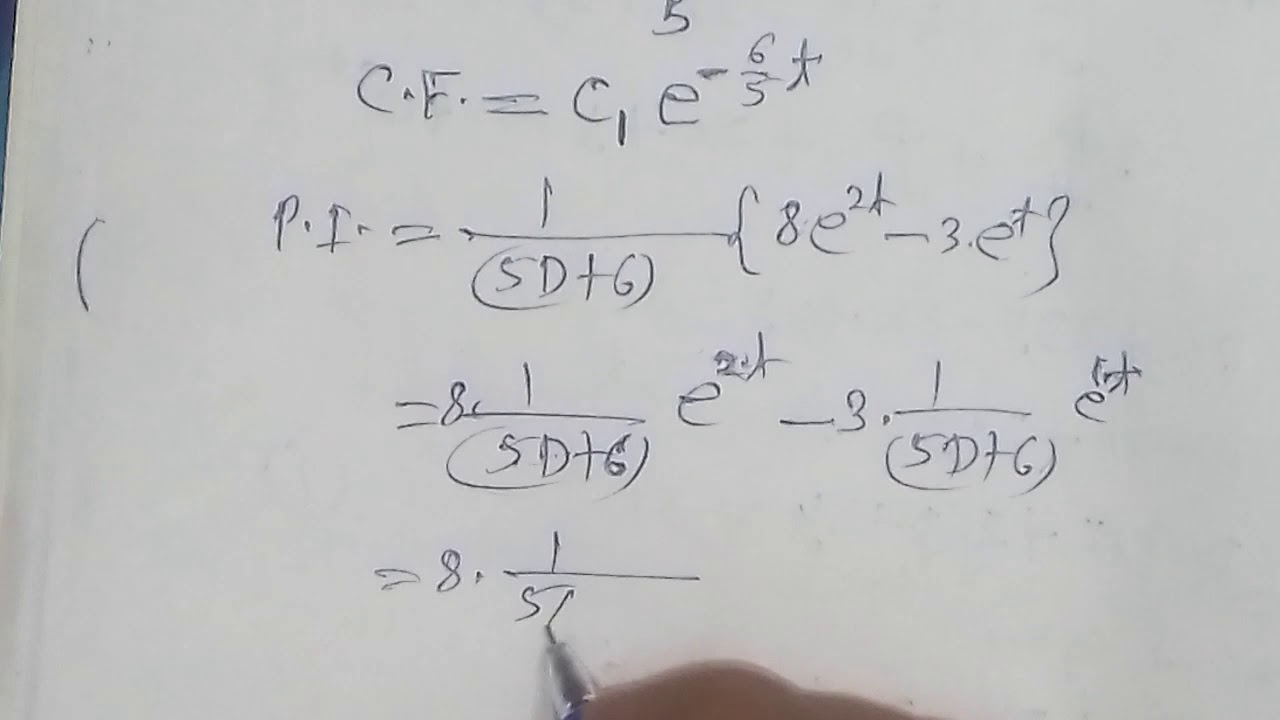 5
C.F. = C₁ e^{-6/5 t}
P.I. = 1/(5D+6) {8e^{2t} - 3.e^{t}}
= 8. 1/(5D+6) e^{2.t} - 3. 1/(5D+6) e^{1.t}
= 8. 1/5